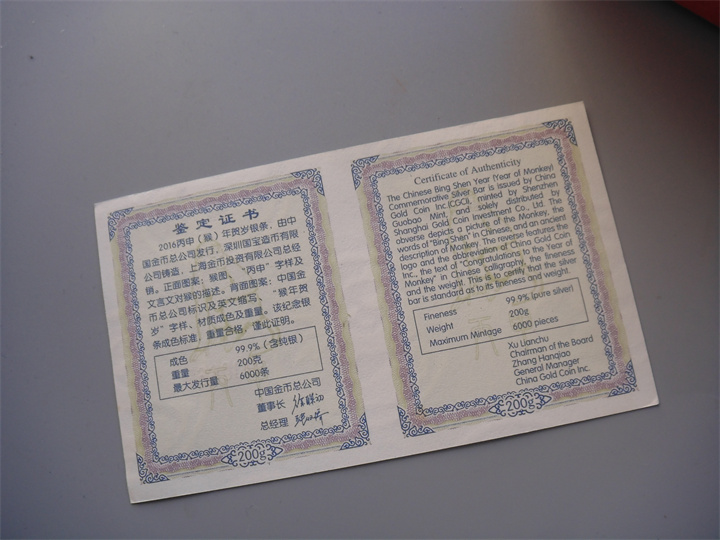 鉴定证书
2016丙申（猴）年贺岁银条，由中
国金币总公司发行，深圳国宝造币有限
公司铸造，上海金币投资有限公司总经
销。正面图案：猴图、“丙申”字样及
文言文对猴的描述。背面图案：中国金
币总公司标识及英文缩写、“猴年贺
岁”字样、材质成色及重量。该纪念银
条成色标准，重量合格，谨此证明。
成色 99.9%（含纯银）
重量 200克
最大发行量 6000条
中国金币总公司
董事长
总经理
200g
Certificate of Authenticity
The Chinese Bing Shen Year (Year of Monkey)
Commemorative Silver Bar is issued by China
Gold Coin Inc.(CGCI), minted by Shenzhen
Guobao Mint, and solely distributed by
Shanghai Gold Coin Investment Co., Ltd. The
obverse depicts a picture of the Monkey, the
words of "Bing Shen" in Chinese, and an ancient
description of Monkey. The reverse features the
logo and the abbreviation of China Gold Coin
Inc., the text of "Congratulations to the Year of
Monkey" in Chinese calligraphy, the fineness
and the weight. This is to certify that the silver
bar is standard as to its fineness and weight.
Fineness 99.9% (pure silver)
Weight 200g
Maximum Mintage 6000 pieces
Xu Lianchu
Chairman of the Board
Zhang Hanqiao
General Manager
China Gold Coin Inc.
200g